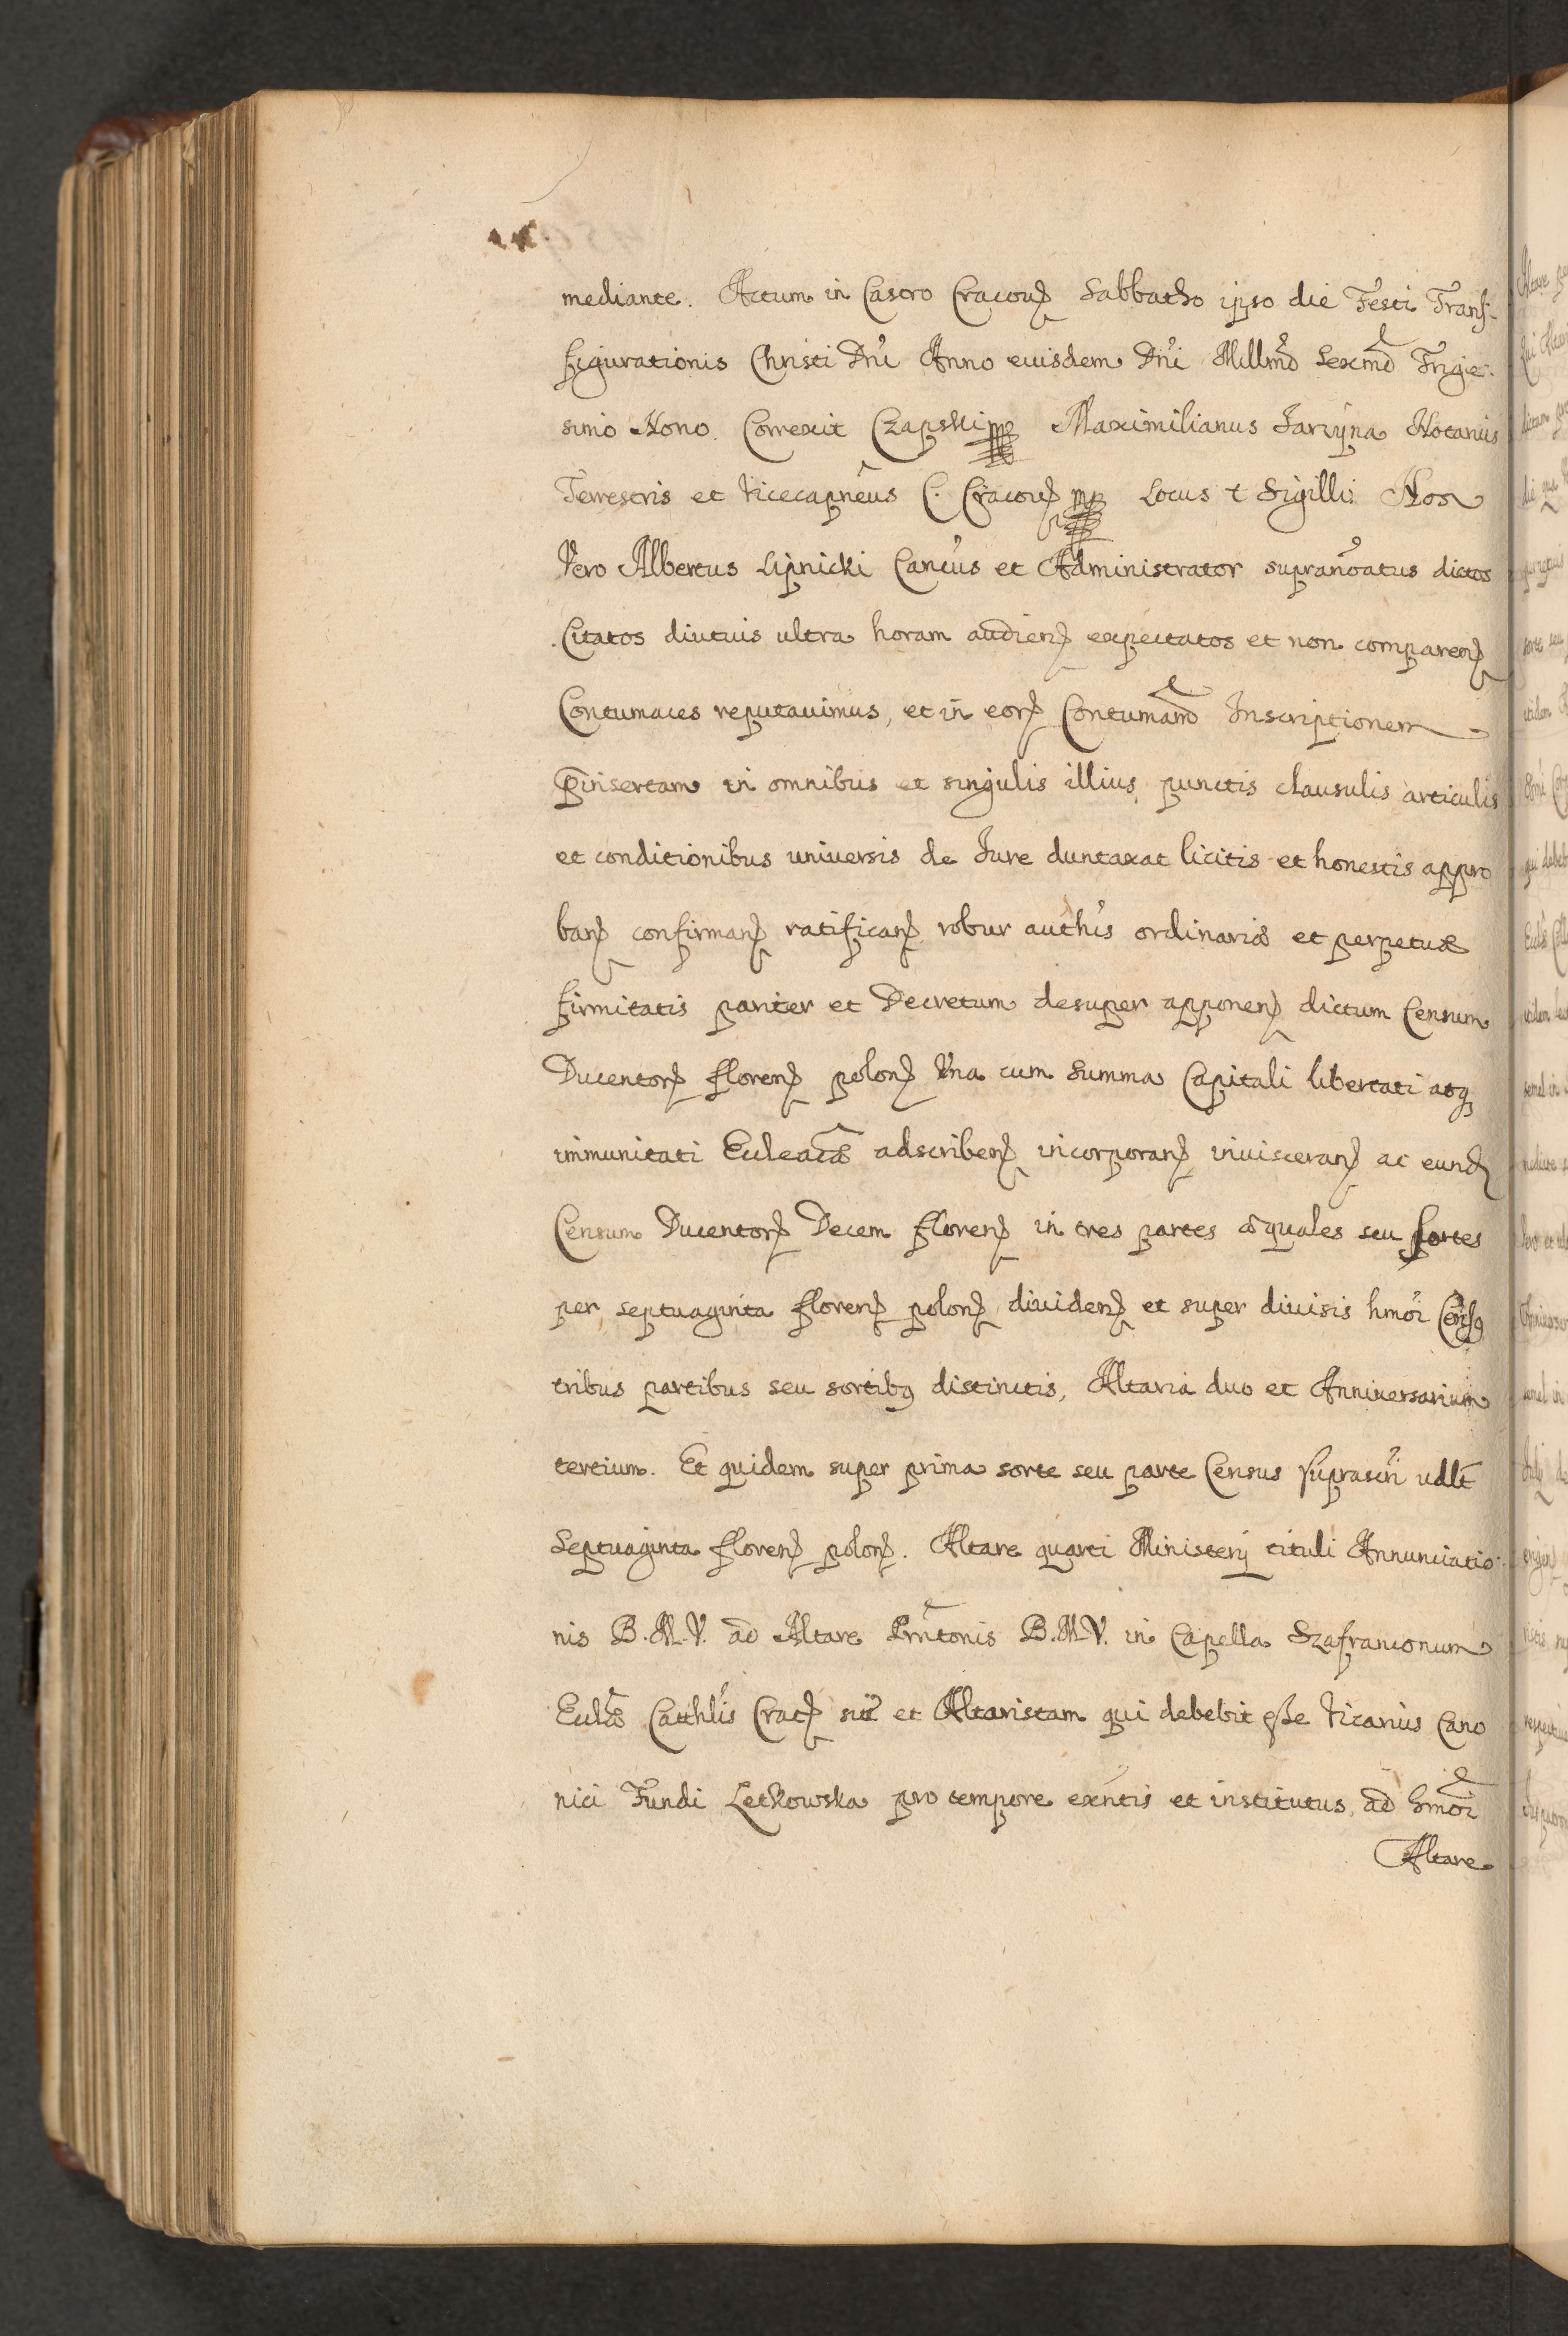 mediante. Actum in Castro Cracouꝭ Sabbatho ipso die Festi Trans-
figurationis Christi Dni Anno eiusdem Dni Millmo Sexmo Trige-
simo Nono. Correxit Czapski mp Maximilianus Jarzyna Notarius
Terrestris et Vicecapneus C. Cracouꝭ mp Locus + Sigilli Nos
Vero Albertus Lipnicki Cancus et Administrator supranoatus dictos
Citatos diutius ultra horam audienꝭ expectatos et non comparenꝭ
Contumaces reputauimus, et in eorꝭ Contumam Inscriptionem
Pinsertam in omnibus et singulis illius punctis clausulis articulis
et conditionibus uniuersis de Jure duntaxat licitis et honestis appro
banꝭ confirmanꝭ ratificanꝭ robur authis ordinariæ et perpetuæ
firmitatis pariter et Decretum desuper apponenꝭ dictum Censum
Ducentorꝭ florenꝭ polonꝭ Vna cum Summa Capitali libertati atq
immunitati Eccleacæ adscribenꝭ incorporanꝭ inuisceranꝭ ac eundꝭ
Censum Ducentorꝭ Decem florenꝭ in tres partes æquales seu sortes
per septuaginta florenꝭ polonꝭ diuidenꝭ et super diuisis hmoi Censq
tribus partibus seu sortibq distinctis, Altaria duo et Anniuersarium
tertium. Et quidem super prima sorte seu parte Census suprascri udlt
Septuaginta florenꝭ polonꝭ. Altare quarti Ministerij tituli Annunciatio-
nis B.M.V. ad Altare Prntonis B.M.V. in Capella Szafrancionum
Eclæ Catthlis Cracꝭ sit et Altaristam qui debebit esse Vicarius Cano
nici Fundi Letkowska pro tempore exntis et institutus ad hmoi
Altare